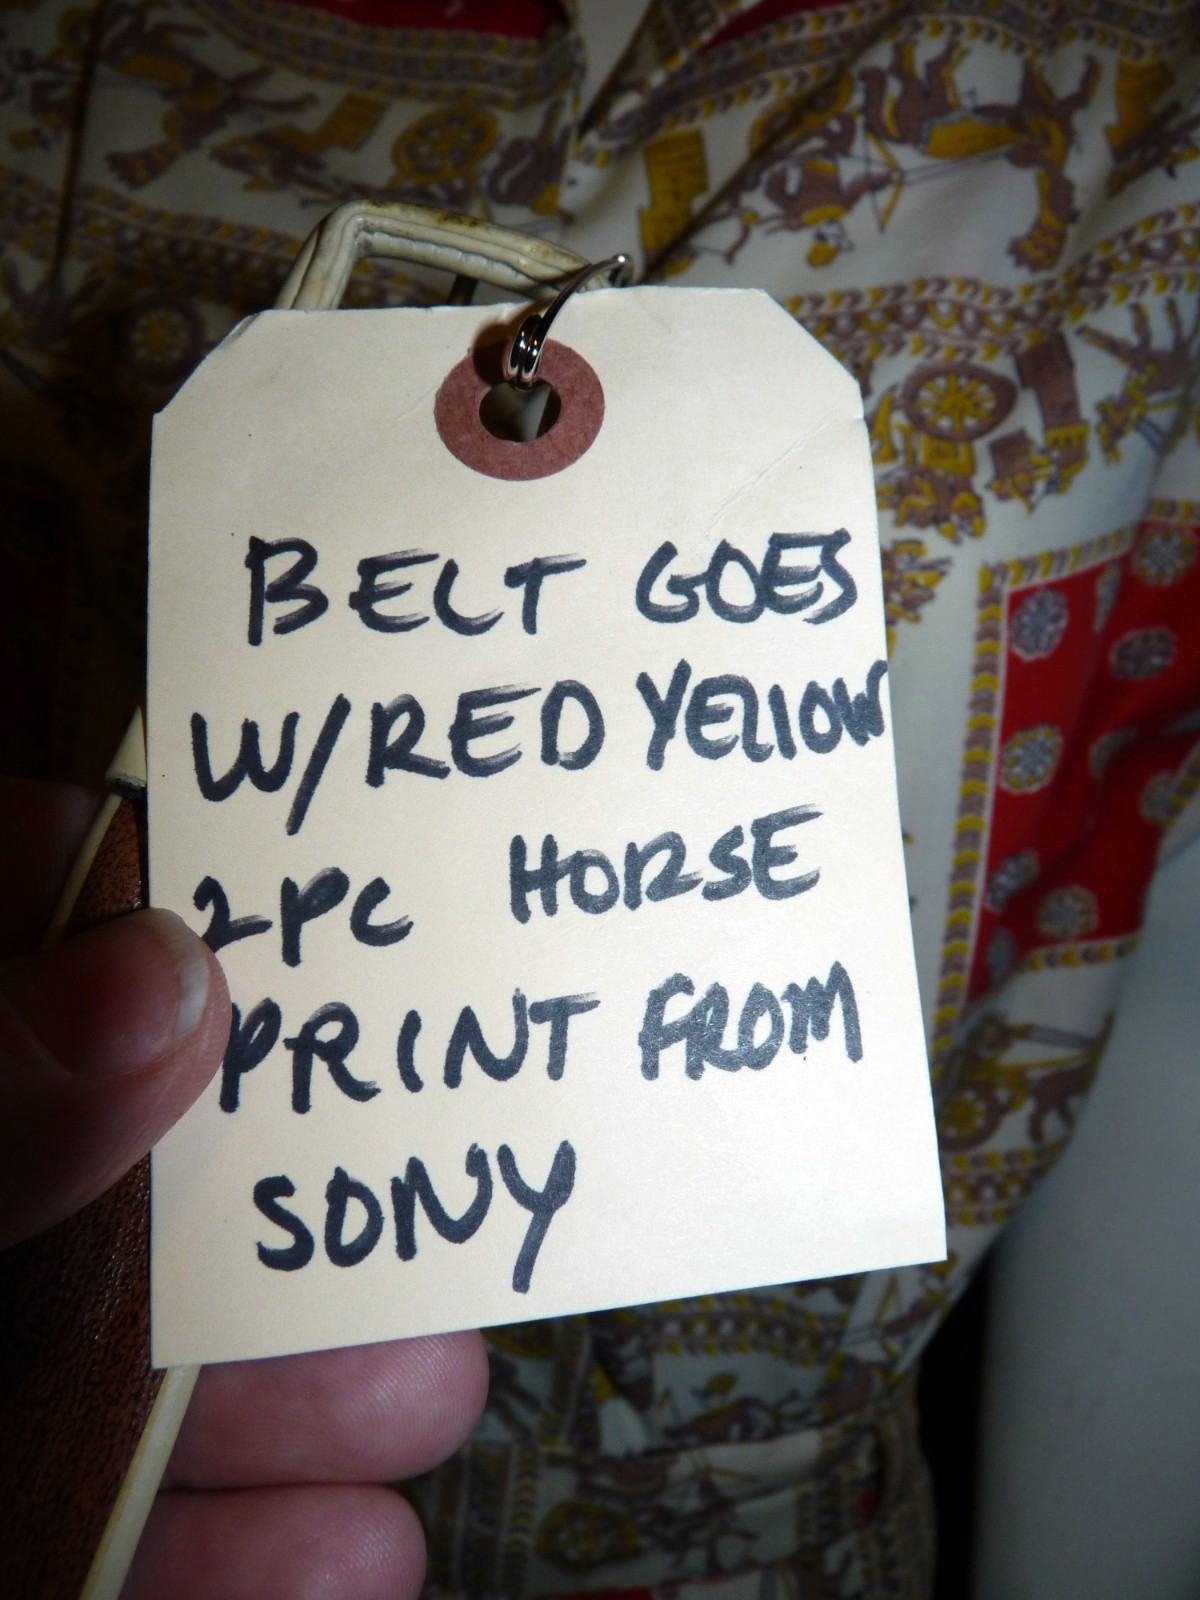 BELT GOES
W/RED YELLOW
2PC HORSE
PRINT FROM
SONY